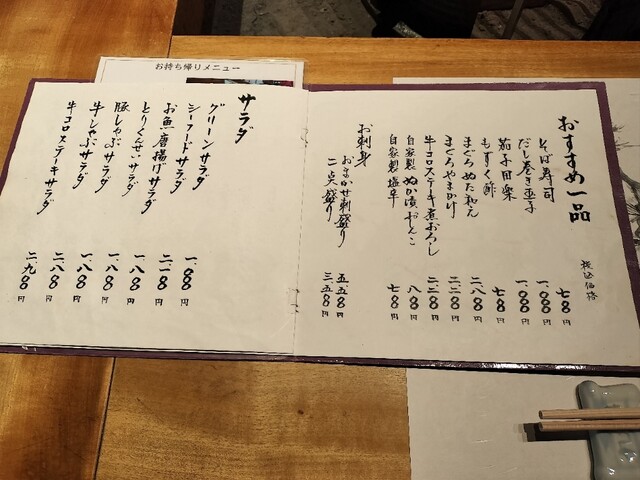 お持ち帰りメニュー
おすすめ一品
税込価格
そば寿司 七〇〇円
だし巻き玉子 一、〇〇〇円
茄子田楽 一、〇〇〇円
もずく酢 七〇〇円
まぐろぬた和え 二、八〇〇円
まぐろやまかけ 二、二〇〇円
牛コロステーキ煮おろし 二、二〇〇円
自家製ぬか漬おしんこ 八〇〇円
自家製塩辛 七〇〇円
お刺身
おまかせ刺盛り 五、五〇〇円
二点盛り 三、五〇〇円
サラダ
グリーンサラダ 一、〇〇〇円
シーフードサラダ 二、一〇〇円
お魚唐揚げサラダ 一、八〇〇円
とりくんせいサラダ 一、八〇〇円
豚しゃぶサラダ 一、八〇〇円
牛しゃぶサラダ 二、八〇〇円
牛コロステーキサラダ 二、九〇〇円